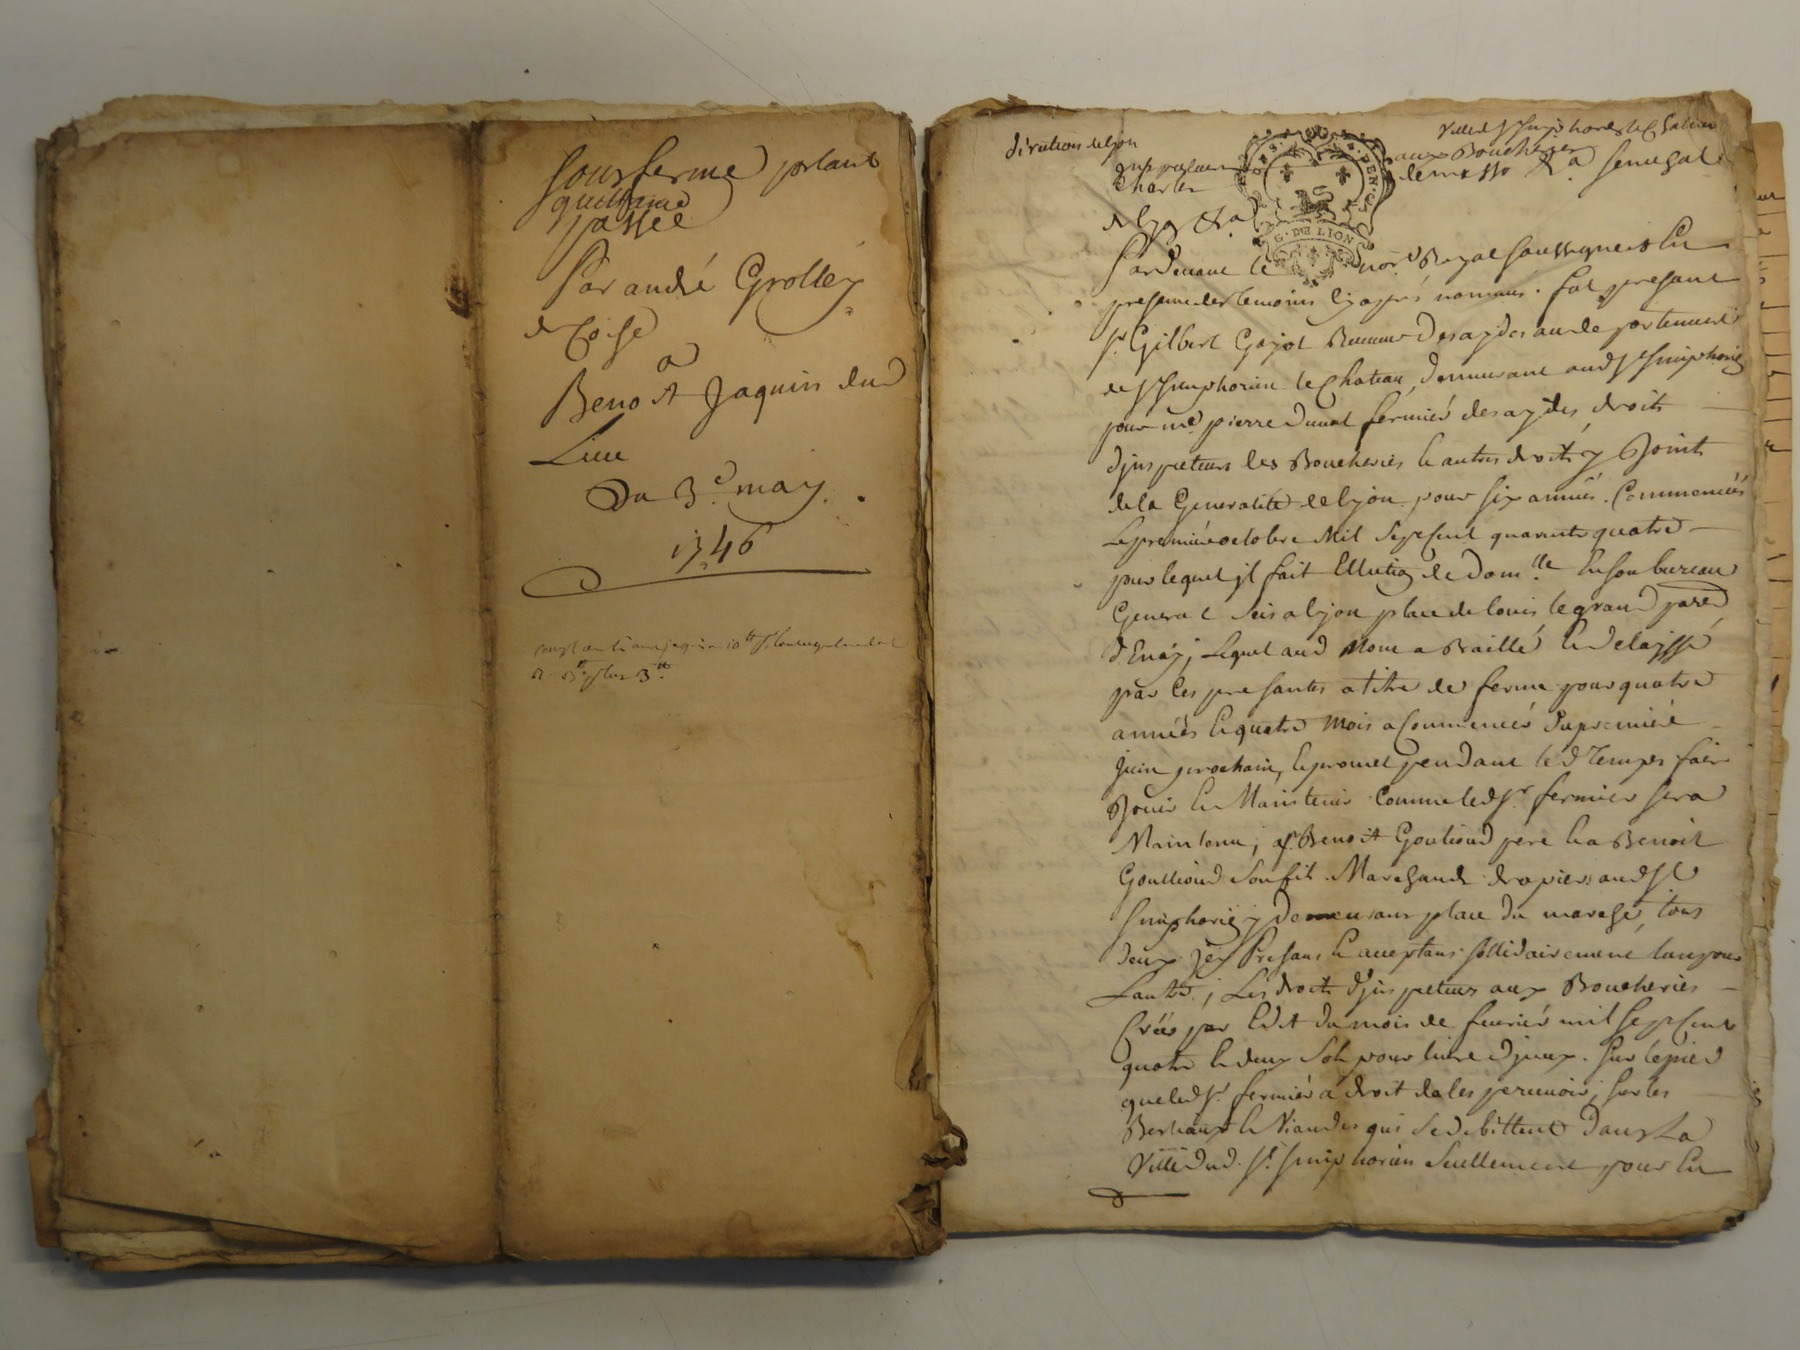 sousferme portant
quittance
passée
Par andré Grolley
de Coise
a
Benoit Jaquin dud
Lieu
Du 3e may
1746
direction de lyon
aux Boucheries
G. DE LION
Pardevant le nore Royal soussigné et En
presence des temoins cy après nommés. fut present
sr. Gilbert Gayot Receveur des aydes au departement
de st simphorien le chateau, demeurant aud st simphorien
pour me. pierre Duval fermier des aydes, droits
d'jnspecteurs les Boucheries & autres droits y Joints
de la Generalité de lyon pour six années. Commencées
Le premier octobre Mil Sept Cent quarante quatre
pour lequel jl fait Ellection de domlle En son bureau
General sis a lyon place de louis le grand parr.
d'Enay; Lequel aud Nom a Baillé & delaissé
par Ces presentes a titre de ferme pour quatre
années & quatre Mois a Commencer du premier
Juin prochain, & promet pendant led temps faire
Jouir & Maintenir Comme led sr fermier sera
Maintenu; a sr. Benoit Goutioud pere & a Benoit
Goutioud son fils Marchands drapiers aud st
simphorien y demeurans place du marché, tous
deux jcy Presans & acceptans solidairement l'un pour
L'autre; Les droits d'jnspecteurs aux Boucheries
Créés par Edit du mois de fevrier mil sept Cent
quatre & deux sols pour livre d'jceux. sur le pied
que led sr. fermier a droit de les percevoir; sur les
Bestiaux & Viandes qui se debittent dans La
Ville dud. st. simphorien seullement pour En